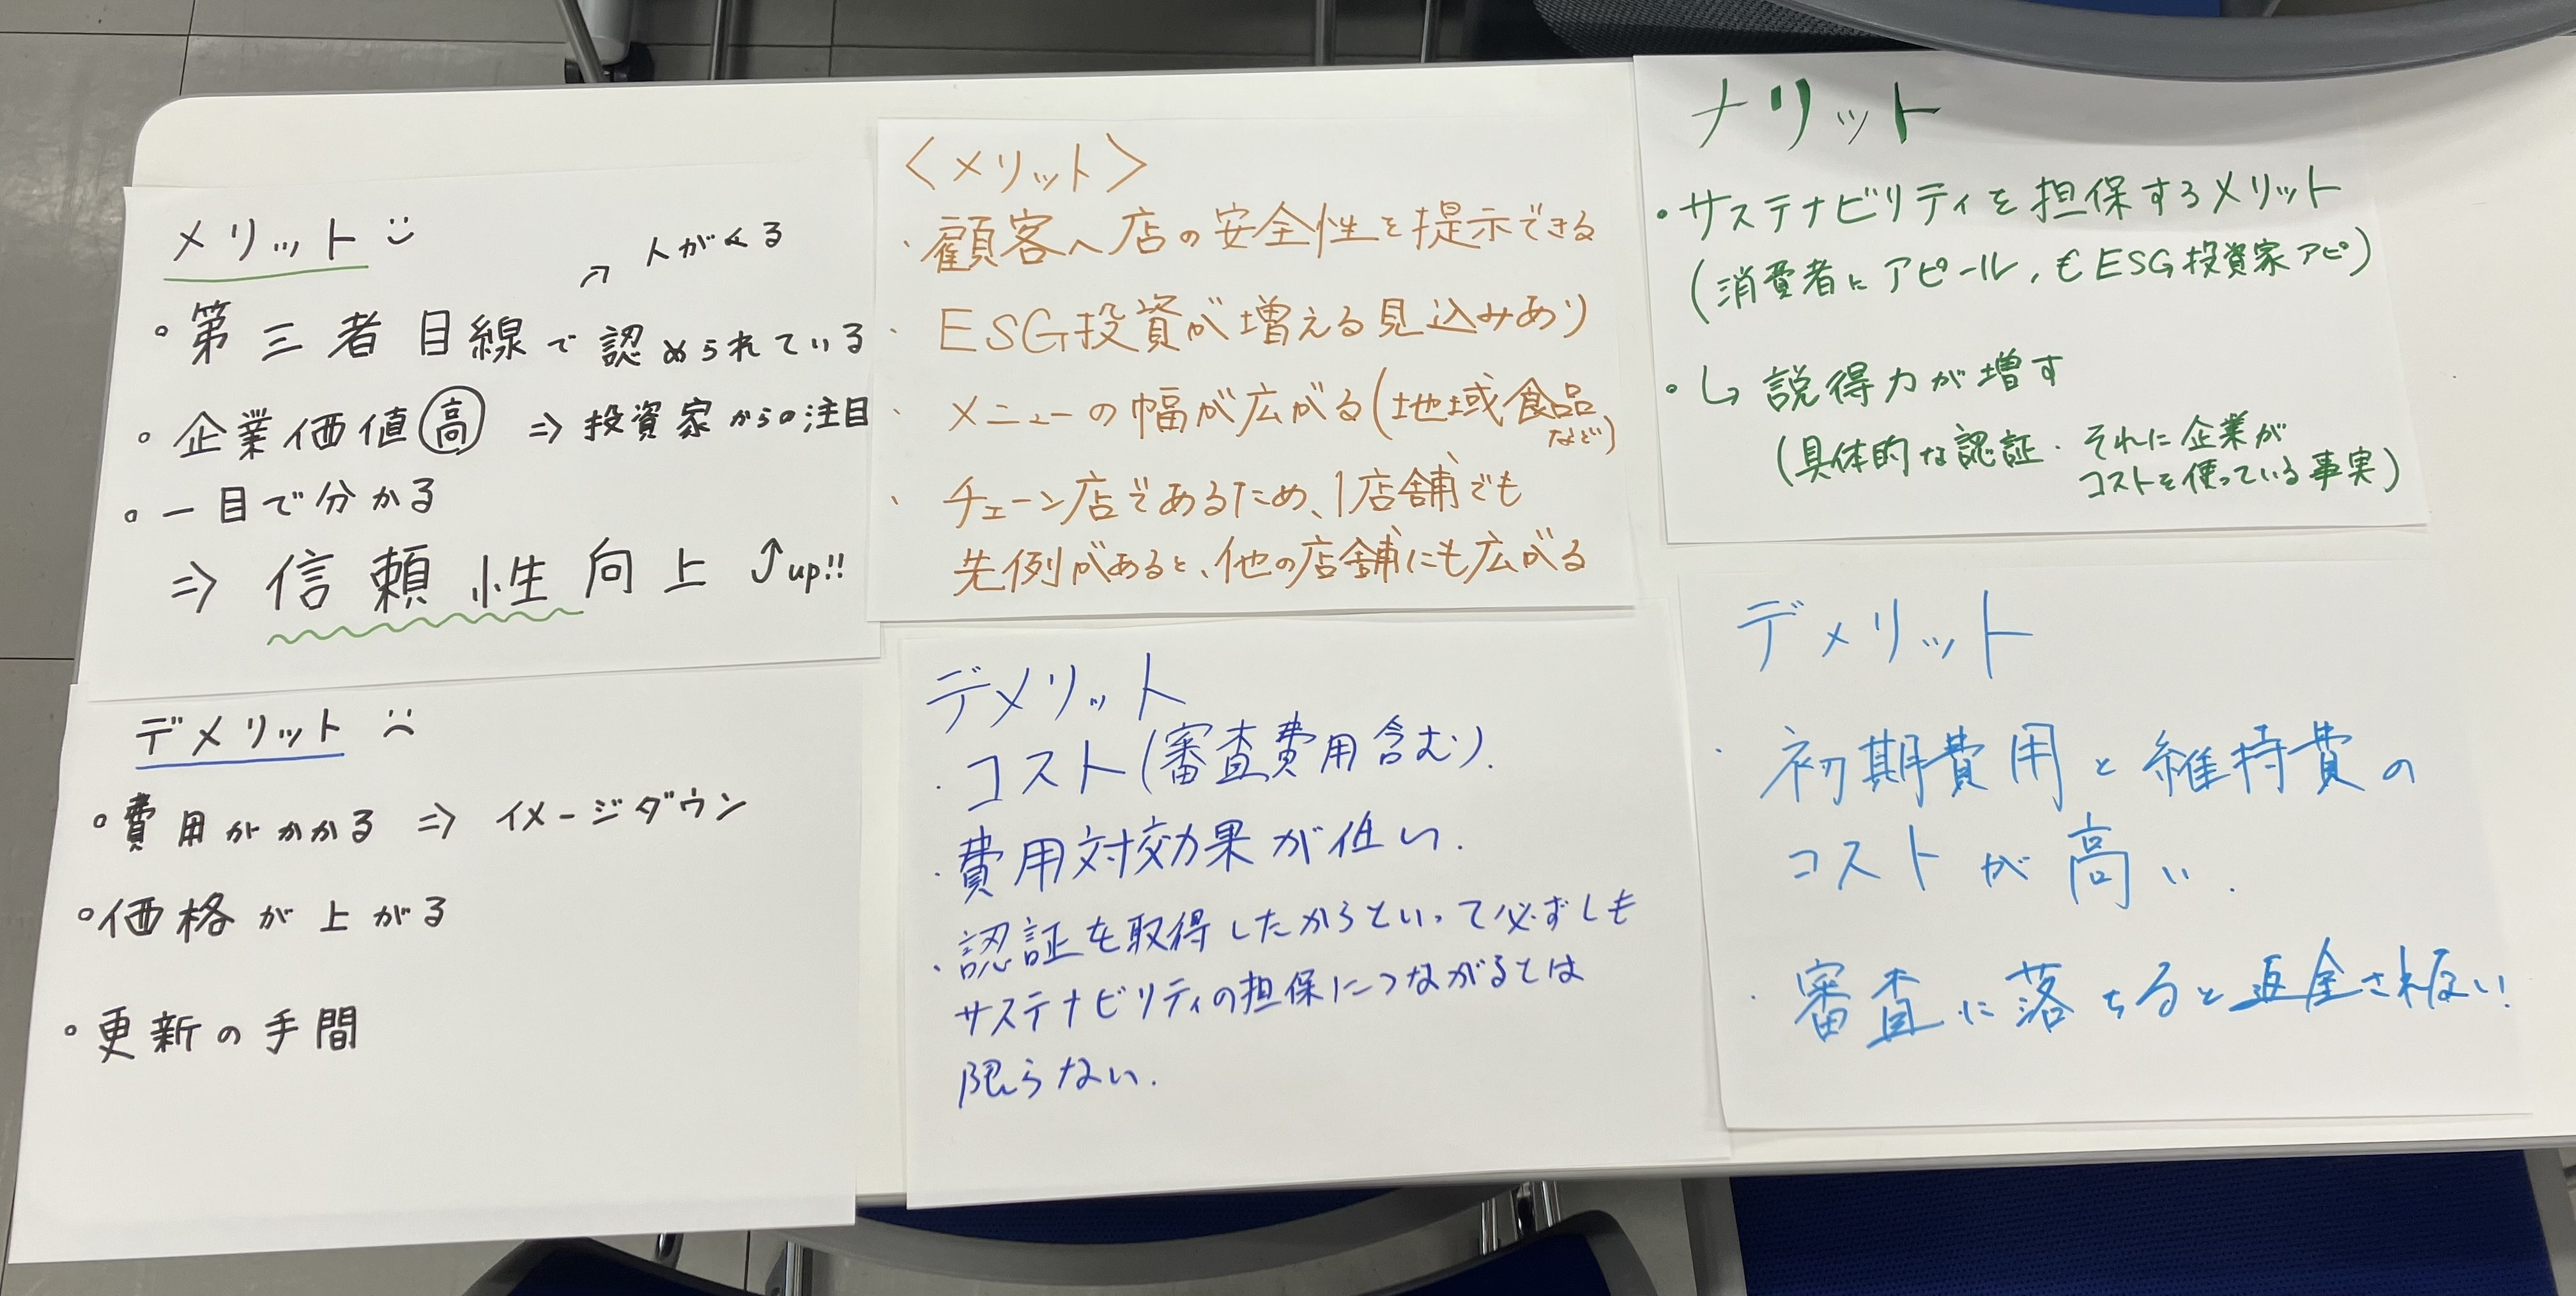 メリット
↗ 人がくる
。第三者目線で認められている
。企業価値高 ⇒ 投資家からの注目
。一目で分かる
⇒ 信頼性向上 up!!
デメリット
。費用がかかる ⇒ イメージダウン
。価格が上がる
。更新の手間
〈メリット〉
・顧客へ店の安全性を提示できる
・ESG投資が増える見込みあり
・メニューの幅が広がる(地域食品
など)
・チェーン店であるため、1店舗でも
先例があると、他の店舗にも広がる
デメリット
・コスト(審査費用含む).
・費用対効果が低い.
・認証を取得したからといって必ずしも
サステナビリティの担保につながるとは
限らない.
メリット
・サステナビリティを担保するメリット
(消費者にアピール,もESG投資家アピ)
。↳ 説得力が増す
(具体的な認証・それに企業が
コストを使っている事実)
デメリット
・初期費用と維持費の
コストが高い.
・審査に落ちると返金されない!